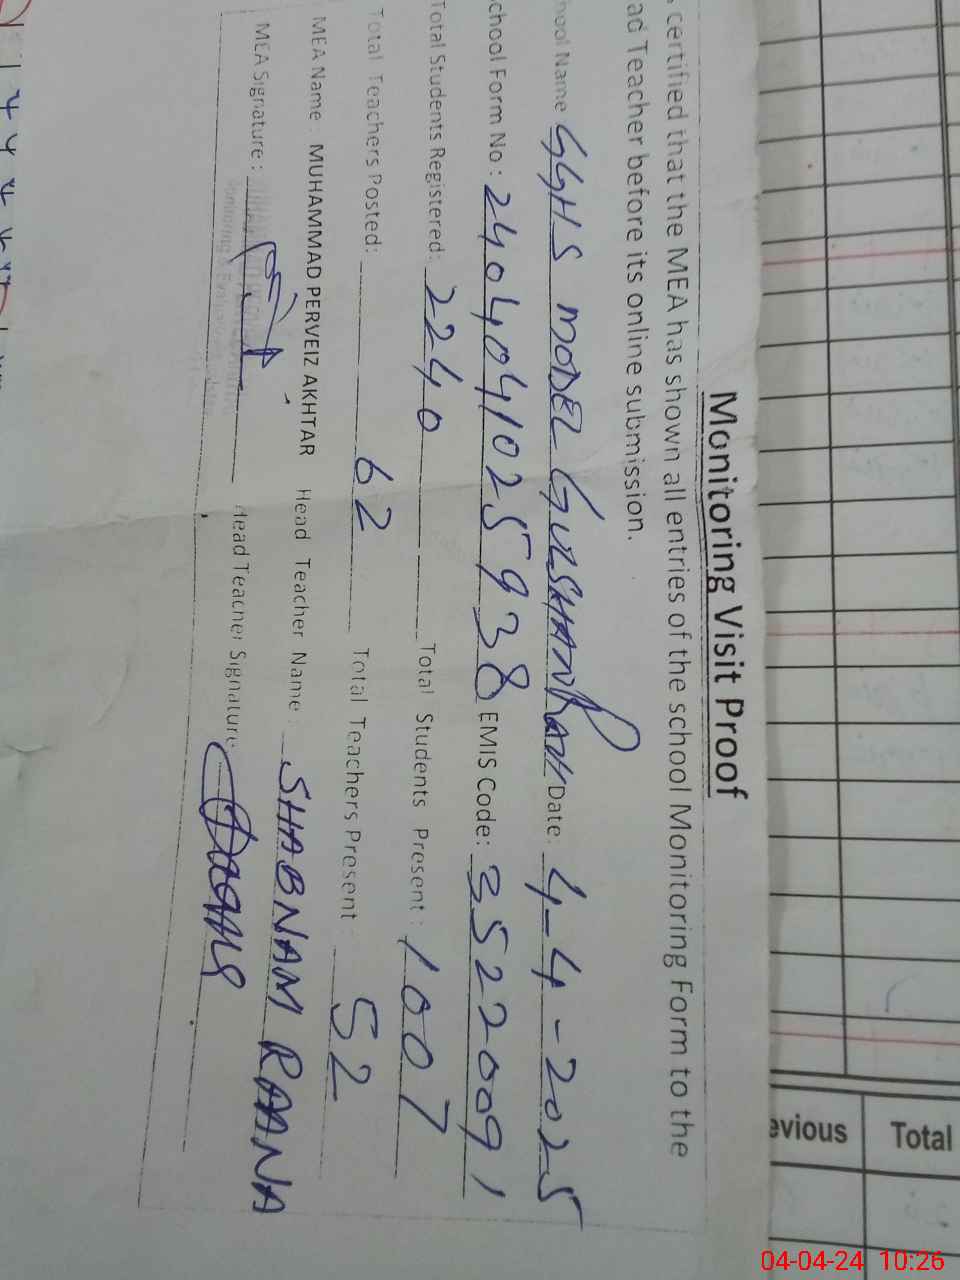 Monitoring Visit Proof
certified that the MEA has shown all entries of the school Monitoring Form to the
ad Teacher before its online submission.
hool Name GGHS MODEL Date: 4-4-2025
chool Form No: 2404041025938 EMIS Code: 35220091
Total Students Registered: 2240 Total Students Present: 1007
Total Teachers Posted: 62 Total Teachers Present 52
MEA Name: MUHAMMAD PERVEIZ AKHTAR Head Teacher Name: SHABNAM RAANA
MEA Signature: Head Teacher Signature
evious Total
04-04-24 10:26